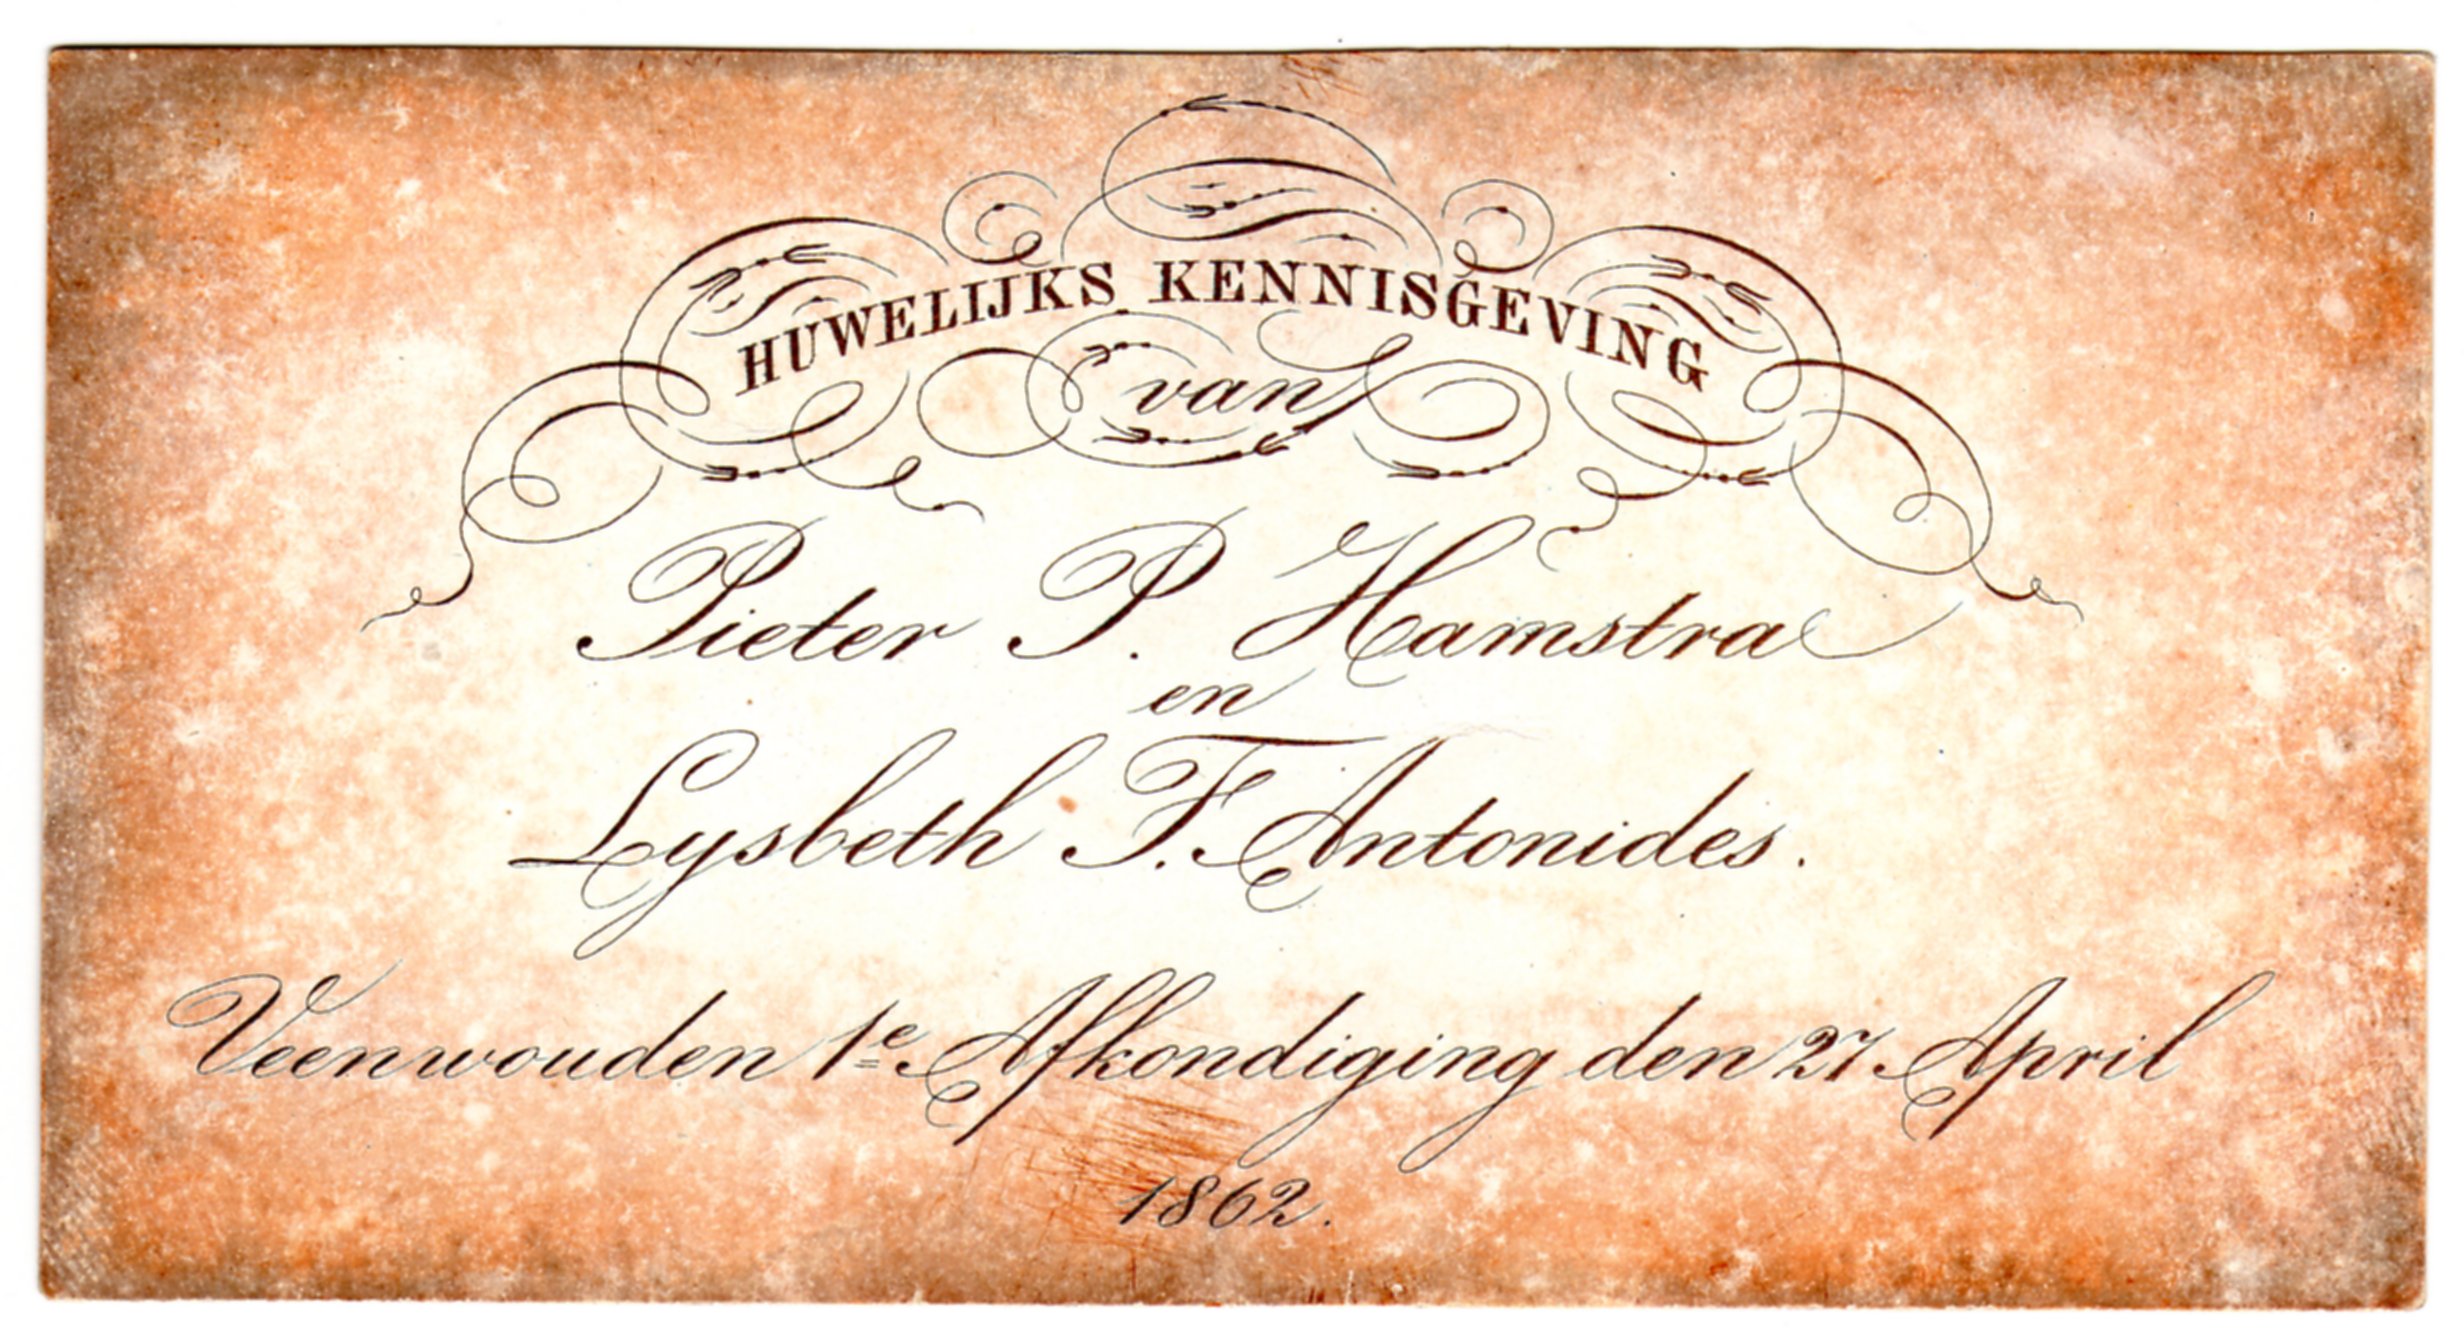 HUWELIJKS KENNISGEVING
van
Pieter P. Hamstra
en
Lysbeth F. Antonides.
Veenwouden 1e Afkondiging den 27 April
1862.